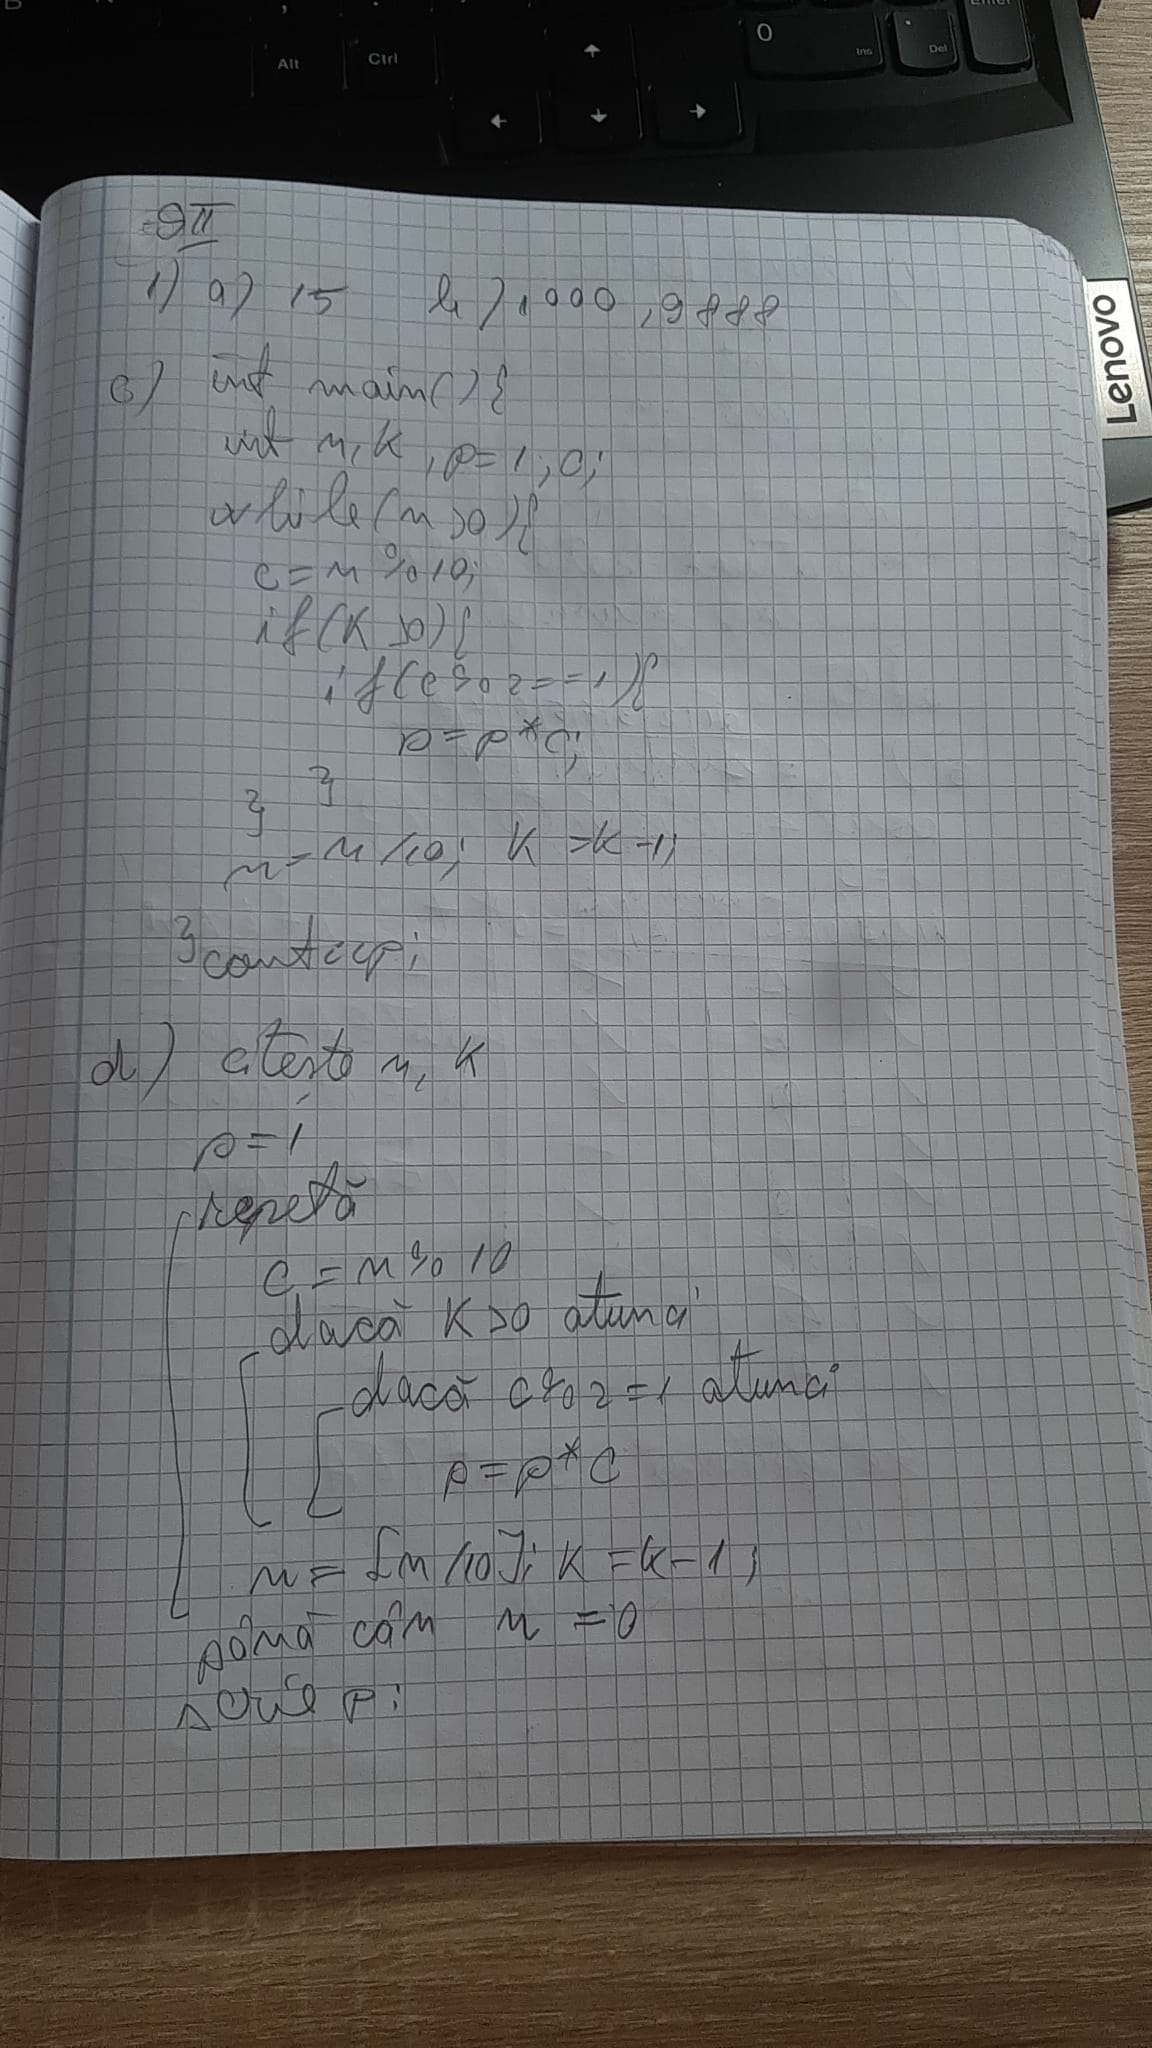 Alt Ctrl 0 Ins . Del Enter
↑
← ↓ →
Lenovo
SII
1) a) 15 b) 1000, 9888
c) int main(){
int n, k, p=1, c;
while(n>0){
c=n%10;
if(k>0){
if(c%2==1){
p=p*c;
}
}
n=n/10; k=k-1;
}
cout<<p;
d) citește n, k
p=1
repetă
c=n%10
dacă k>0 atunci
dacă c%2=1 atunci
p=p*c
n=[n/10]; k=k-1;
până când n=0
scrie p;